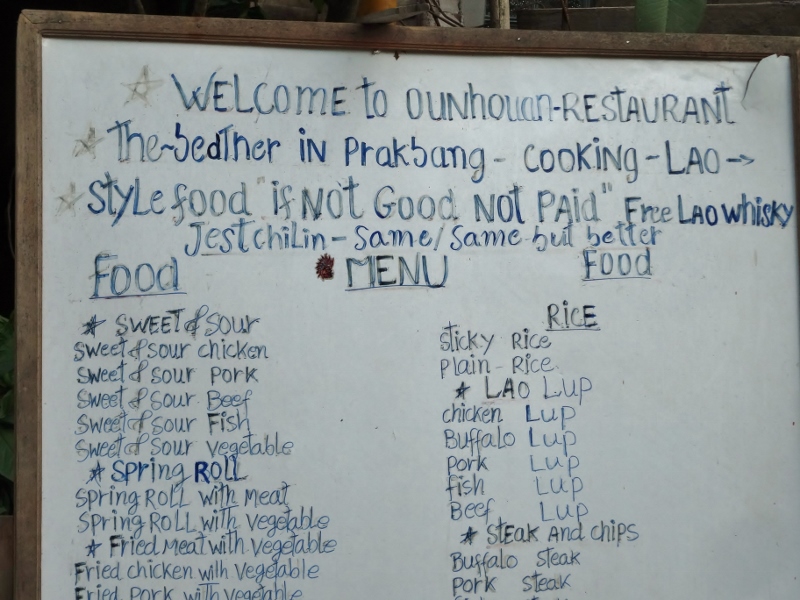 WELCOME to OUNhouan-RESTAURANT
The-bedTher in Prakbang - COOKING - LAO ->
Style food "if NOT Good NOT PAid" Free LAO whisky
Jestchilin - Same/Same but better
Food
MENU
Food
* SWEET & SOUR
Sweet & Sour chicken
Sweet & Sour Pork
Sweet & Sour Beef
Sweet & Sour Fish
Sweet & Sour Vegetable
* Spring ROLL
Spring ROLL with Meat
Spring ROLL with Vegetable
* Fried Meat with Vegetable
Fried chicken with Vegetable
Fried Pork with Vegetable
RiCE
Sticky Rice
Plain - Rice
* LAO Lup
chicken Lup
Buffalo Lup
Pork Lup
fish Lup
Beef Lup
* Steak And chips
Buffalo Steak
Pork Steak